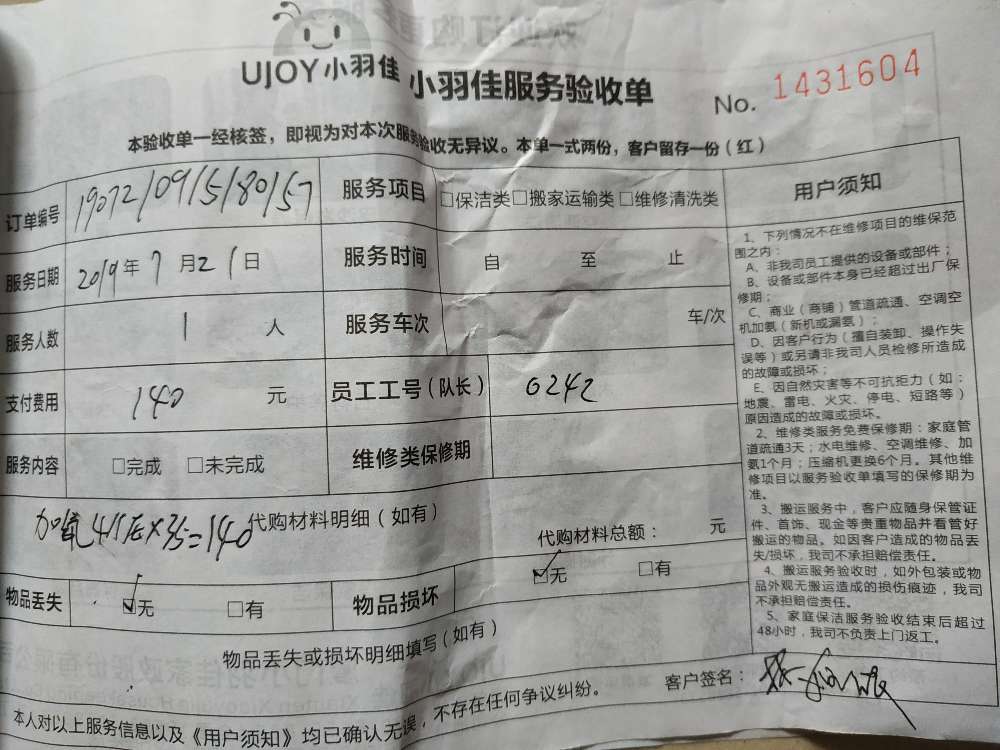 UJOY小羽佳 小羽佳服务验收单 No. 1431604
本验收单一经核签，即视为对本次服务验收无异议。本单一式两份，客户留存一份（红）
订单编号 19072109/5/80/57
服务项目 □保洁类□搬家运输类□维修清洗类
服务日期 2019年7月21日
服务时间 自 至 止
服务人数 1 人
服务车次 车/次
支付费用 140 元
员工工号（队长） 0242
服务内容 □完成 □未完成
维修类保修期
代购材料明细（如有）
=140
代购材料总额： 元
物品丢失 ☑无 □有
物品损坏 ☑无 □有
物品丢失或损坏明细填写（如有）
本人对以上服务信息以及《用户须知》均已确认无误，不存在任何争议纠纷。 客户签名：
用户须知
1、下列情况不在维修项目的维保范
围之内：
A、非我司员工提供的设备或部件；
B、设备或部件本身已经超过出厂保
修期；
C、商业（商铺）管道疏通、空调空
机加氨（新机或漏氨）；
D、因客户行为（擅自装卸、操作失
误等）或另请非我司人员检修所造成
的故障或损坏；
E、因自然灾害等不可抗拒力（如：
地震、雷电、火灾、停电、短路等）
原因造成的故障或损坏。
2、维修类服务免费保修期：家庭管
道疏通3天；水电维修、空调维修、加
氨1个月；压缩机更换6个月。其他维
修项目以服务验收单填写的保修期为
准。
3、搬运服务中，客户应随身保管证
件、首饰、现金等贵重物品并看管好
搬运的物品。如因客户造成的物品丢
失/损坏，我司不承担赔偿责任。
4、搬运服务验收时，如外包装或物
品外观无搬运造成的损伤痕迹，我司
不承担赔偿责任。
5、家庭保洁服务验收结束后超过
48小时，我司不负责上门返工。